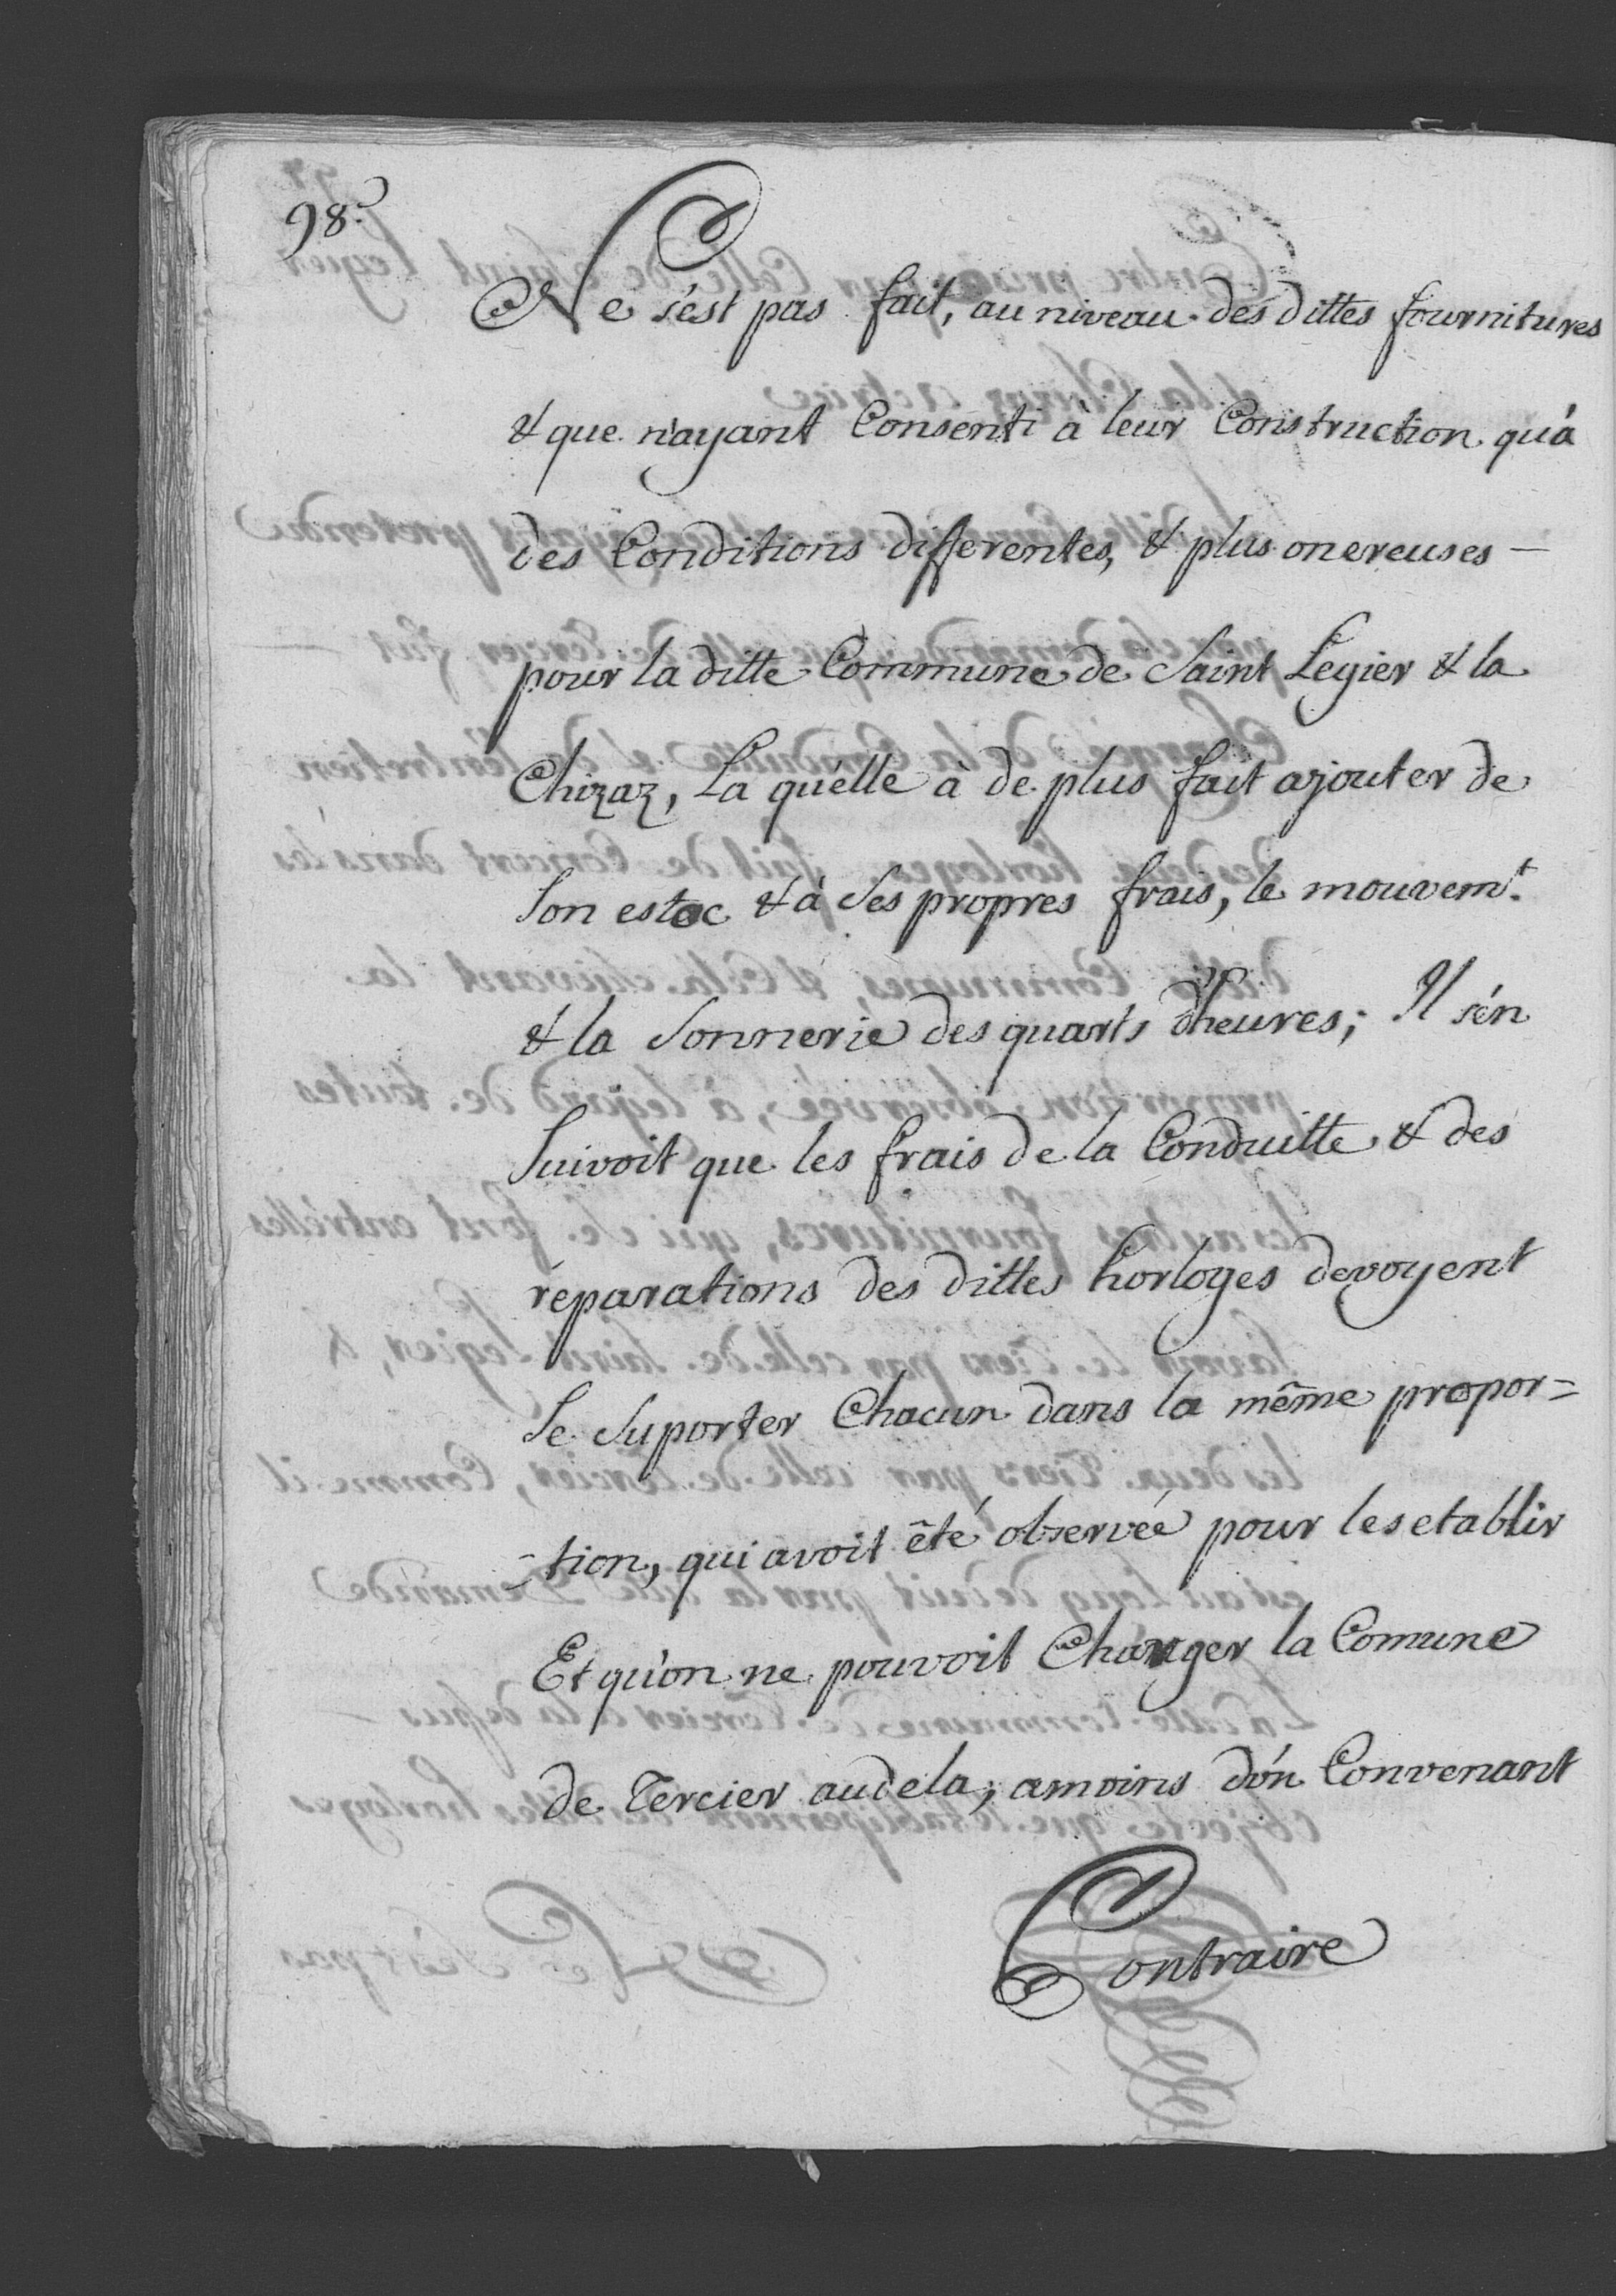 98.
Ne s'est pas fait, au niveau des dittes fournitures
& que n'ayant Consenti à leur Construction qu'à
des Conditions differentes, & plus onereuses —
pour la ditte Commune de Saint Legier & la
Chizaz, La qu'elle à de plus fait ajouter de
Son estoc & à Ses propres frais, le mouvem.t
& la Sonnerie des quarts d'heures; Il s'en
Suivoit que les frais de la Conduitte & des
réparations des dittes horloges devoyent
Se Suporter Chacun dans la même propor=
=tion, qui avoit êté observée pour les etablir
Et qu'on ne pouvoit Charger la Comune
de Tercier audela, amoins d'ún Convenant
Contraire